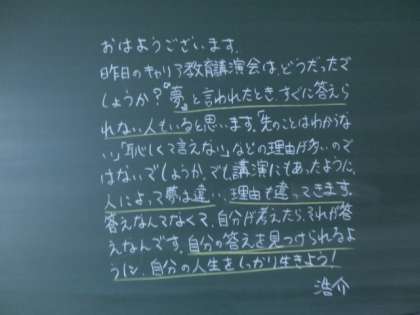 おはようございます。
昨日のキャリア教育講演会は、どうだったで
しょうか？"夢"と言われたとき、すぐに答えら
れない人もいると思います。「先のことはわからな
い」「恥しくて言えない」などの理由が多いので
はないでしょうか。でも、講演にもあったように、
人によって夢は違い、理由も違ってきます。
答えなんてなくて、自分が考えたら、それが答
えなんです。自分の答えを見つけられるよ
うに、自分の人生をしっかり生きよう！
浩介